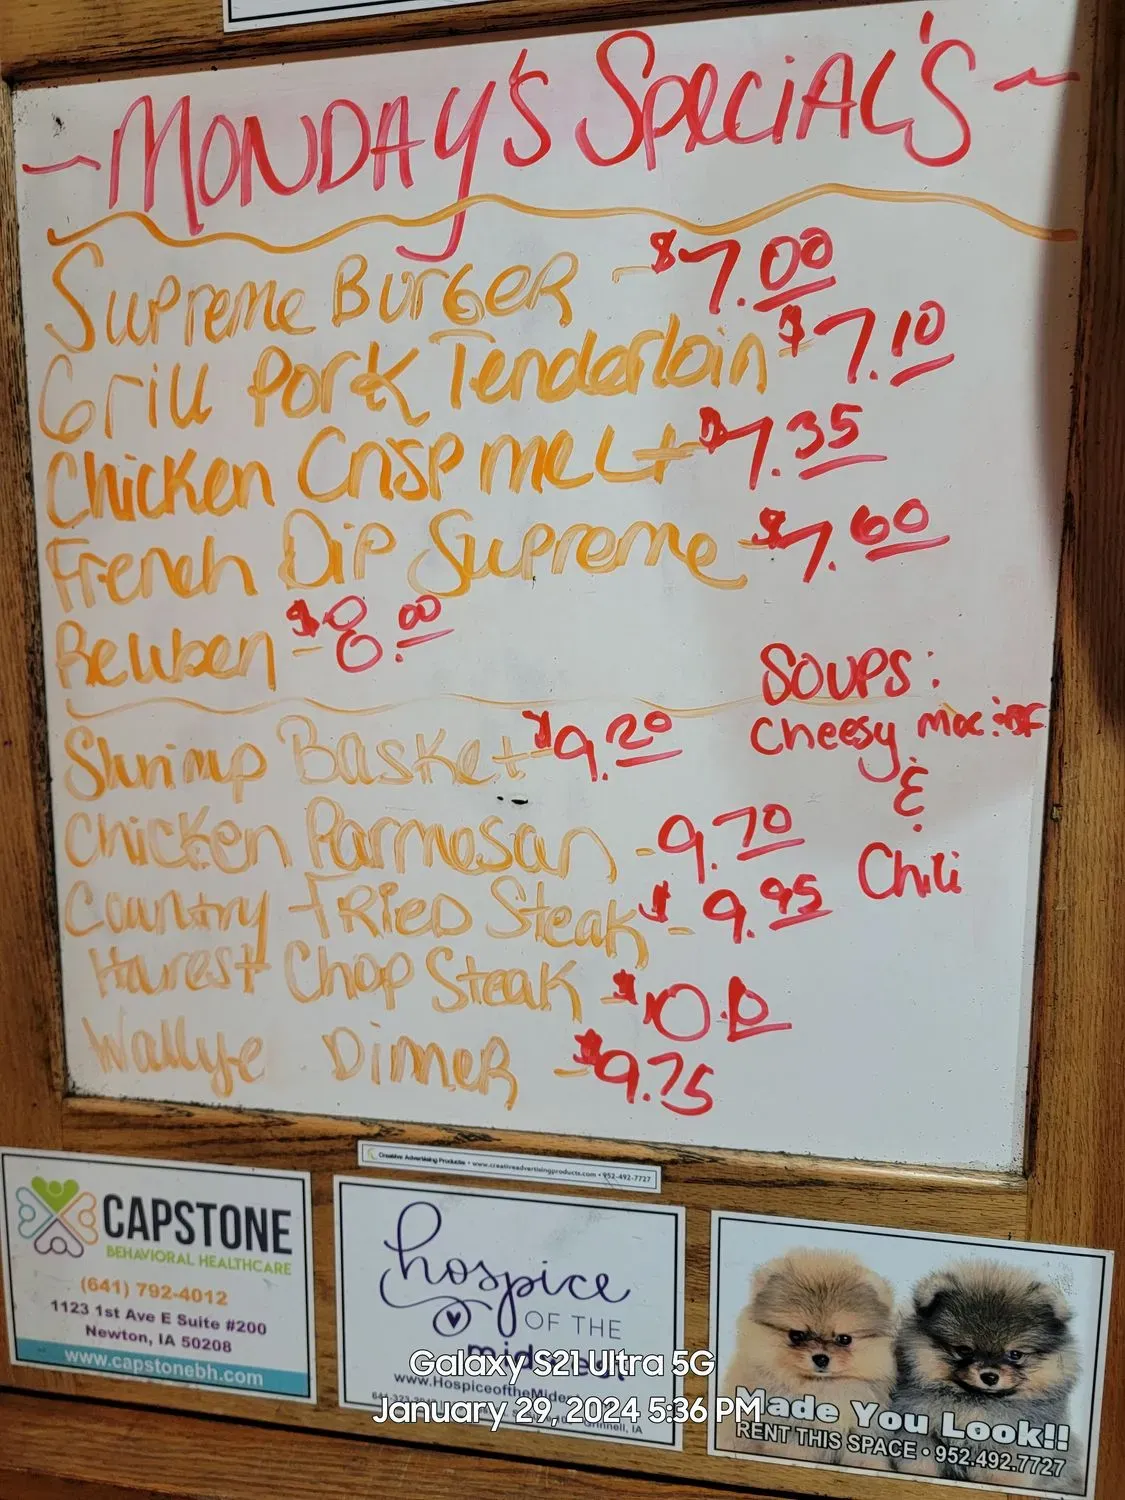 ~ MONDAY'S SPECIAL'S ~
Supreme Burger - $7.00
Grill Pork Tenderloin - $7.10
Chicken Crisp Melt - $7.35
French Dip Supreme - $7.60
Reuben - $8.00
Shrimp Basket - $9.20
Chicken Parmesan - 9.70
Country Fried Steak - $9.95
Harest Chop Steak - $10.10
Wallye Dinner - $9.75
SOUPS:
Cheesy Mac
&
Chili
Creative Advertising Products • www.creativeadvertisingproducts.com • 952-492-7727
CAPSTONE
BEHAVIORAL HEALTHCARE
(641) 792-4012
1123 1st Ave E Suite #200
Newton, IA 50208
www.capstonebh.com
hospice
OF THE
midwest
Grinnell, IA
Made You Look!!
RENT THIS SPACE • 952.492.7727
Galaxy S21 Ultra 5G
January 29, 2024 5:36 PM